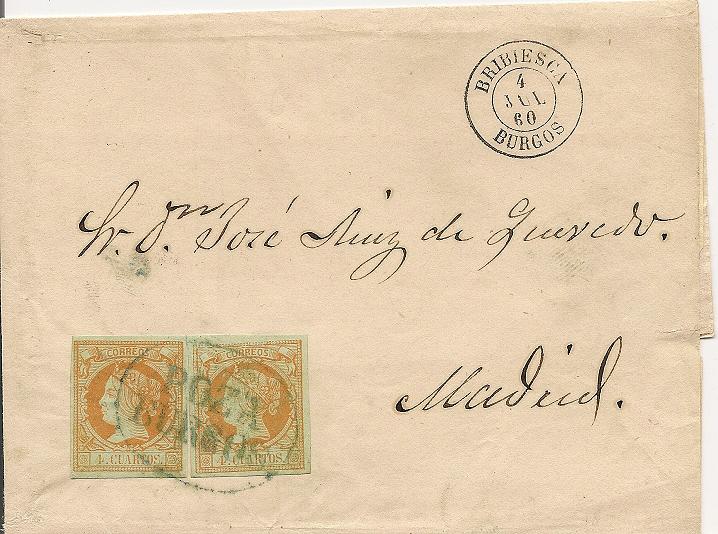 BRIBIESCA
4
JUL
60
BURGOS
Sr. D.ⁿ José Ruiz de Quevedo.
Madrid.
CORREOS CORREOS
POZA
BURGOS
4. CUARTOS. 4. CUARTOS.